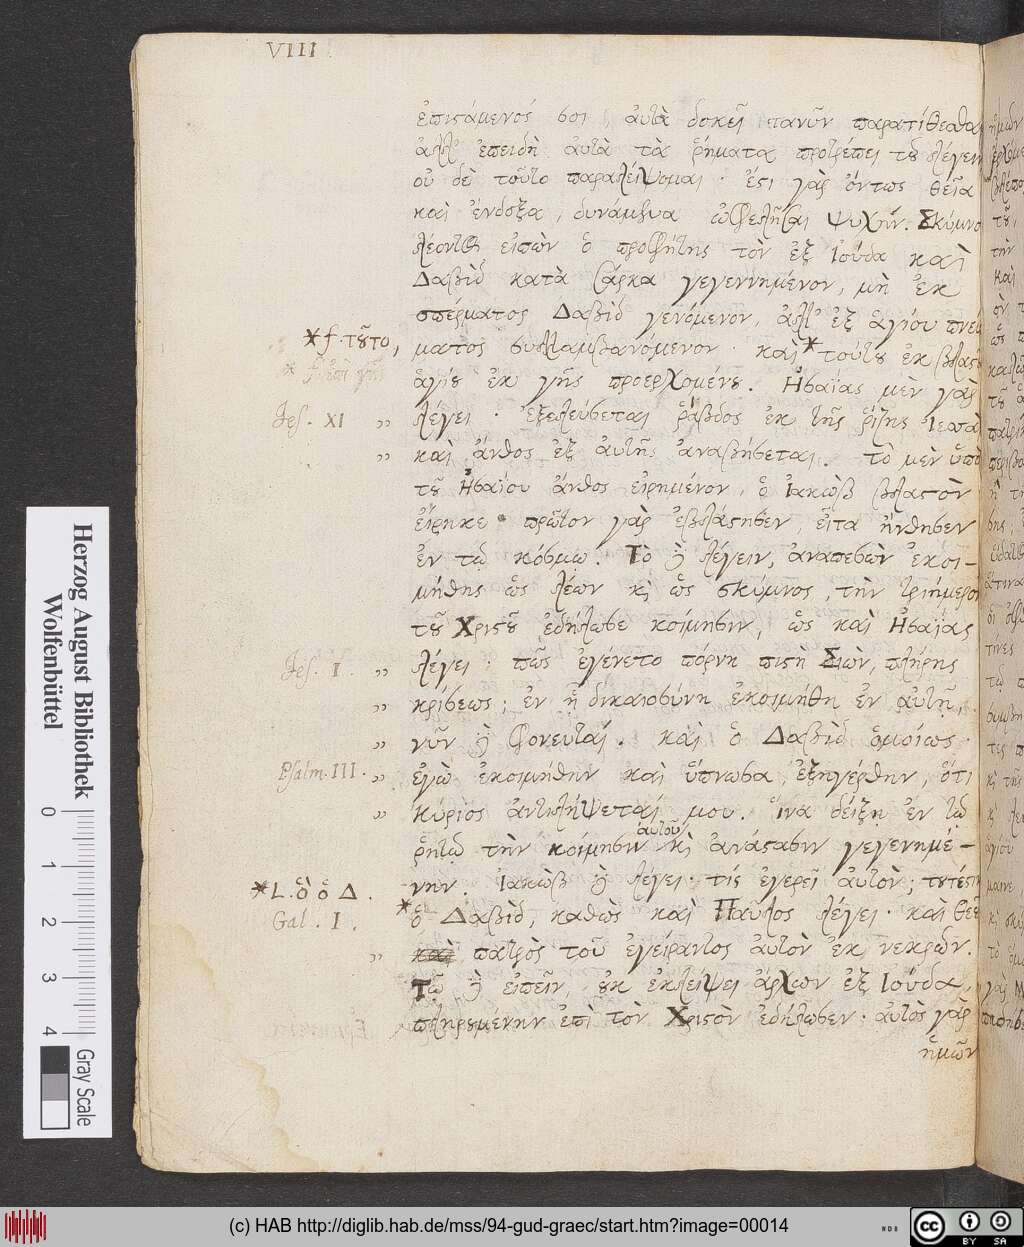 VIII
ἐπιστάμενός σοι, αὐτὰ δοκεῖ τανῦν παρατίθεσθαι
ἀλλ' ἐπειδὴ αὐτὰ τὰ ῥήματα προτρέπει τοῦ λέγειν
οὐδὲ τοῦτο παραλείψομαι· ἔστι γὰρ ὄντως θεῖα
καὶ ἔνδοξα, δυνάμενα ὠφελῆσαι ψυχήν. Σκύμνον
λέοντος εἰπὼν ὁ προφήτης τὸν ἐξ Ἰούδα καὶ
Δαβὶδ κατὰ σάρκα γεγεννημένον, μὴ ἐκ
σπέρματος Δαβὶδ γενόμενον, ἀλλ' ἐξ ἁγίου πνεύ
* f. τοῦτο, ματος συλλαμβανόμενον· καὶ * τούτου ἐκ βλαστοῦ
* f. ἐπὶ γῆς ἁγίου ἐκ γῆς προερχομένου. Ἡσαΐας μὲν γὰρ
Jes. XI „ λέγει· ἐξελεύσεται ῥάβδος ἐκ τῆς ῥίζης Ἰεσσαὶ
„ καὶ ἄνθος ἐξ αὐτῆς ἀναβήσεται. τὸ μὲν ὑπὸ
τοῦ Ἡσαΐου ἄνθος εἰρημένον, ὁ Ἰακὼβ βλαστὸν
εἴρηκε· πρῶτον γὰρ ἐβλάστησεν, εἶτα ἤνθησεν
ἐν τῷ κόσμῳ. Τὸ δὲ λέγειν, ἀναπεσὼν ἐκοι-
μήθης ὡς λέων καὶ ὡς σκύμνος, τὴν τριήμερον
τοῦ Χριστοῦ ἐδήλωσε κοίμησιν, ὡς καὶ Ἡσαΐας
Jes. I. „ λέγει· πῶς ἐγένετο πόρνη πιστὴ Σιὼν, πλήρης
„ κρίσεως; ἐν ᾗ δικαιοσύνη ἐκοιμήθη ἐν αὐτῇ,
„ νῦν δὲ φονευταί. καὶ ὁ Δαβὶδ ὁμοίως·
Psalm. III. „ ἐγὼ ἐκοιμήθην καὶ ὕπνωσα, ἐξηγέρθην, ὅτι
„ κύριος ἀντιλήψεταί μου, ἵνα δείξῃ ἐν τῷ
ῥητῷ τὴν κοίμησιν αὐτοῦ καὶ ἀνάστασιν γεγενημέ-
νην. Ἰακὼβ δὲ λέγει· τίς ἐγερεῖ αὐτὸν; τουτέστιν
* L. ὃ ὁ Δ. * ὁ Δαβὶδ, καθὼς καὶ Παῦλος λέγει· καὶ θεοῦ
Gal. I.
„ καὶ πατρὸς τοῦ ἐγείραντος αὐτὸν ἐκ νεκρῶν.
Τῷ δὲ εἰπεῖν, οὐκ ἐκλείψει ἄρχων ἐξ Ἰούδα,
πληρουμένην ἐπὶ τὸν Χριστὸν ἐδήλωσεν· αὐτὸς γὰρ
ἡμῶν
Herzog August Bibliothek
Wolfenbüttel
0 1 2 3 4
Gray Scale
(c) HAB http://diglib.hab.de/mss/94-gud-graec/start.htm?image=00014
WDB
cc BY SA